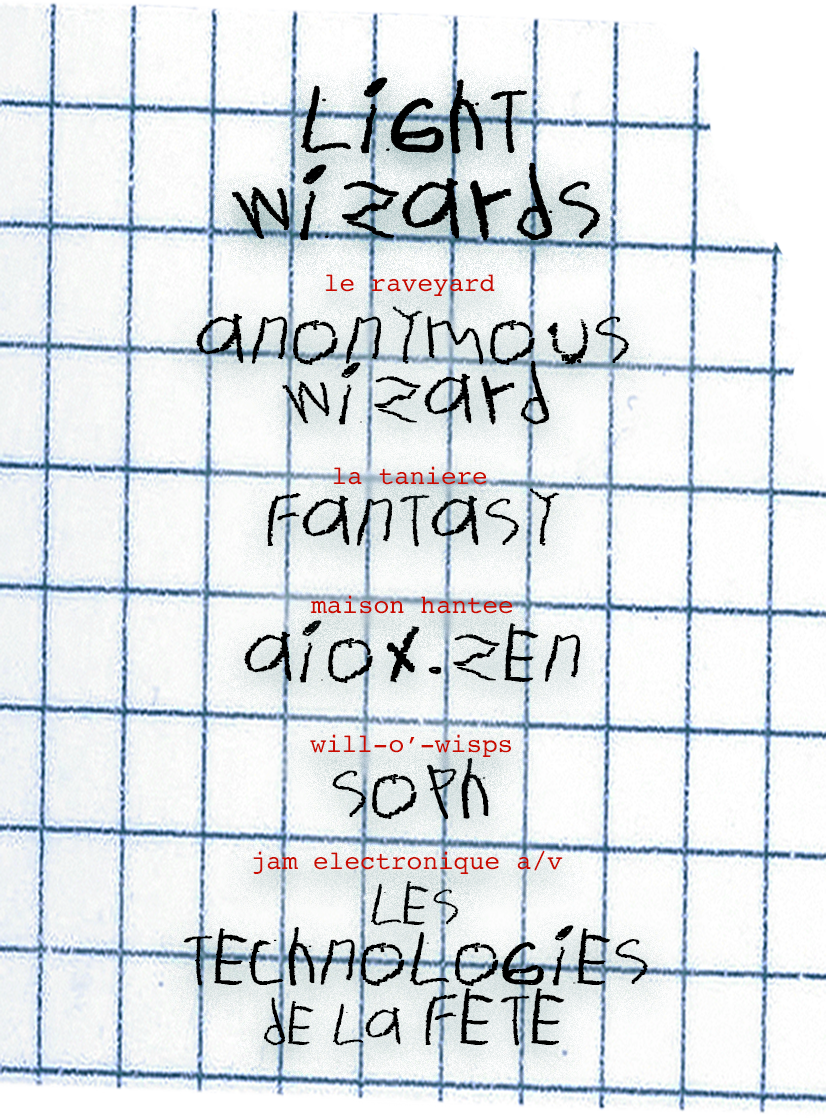 LiGhT
wizards
le raveyard
anonYmous
wizard
la taniere
FanTasY
maison hantee
aiox.zEn
will-o’-wisps
soPh
jam electronique a/v
LES
TEChnoLoGiES
dE La FETE